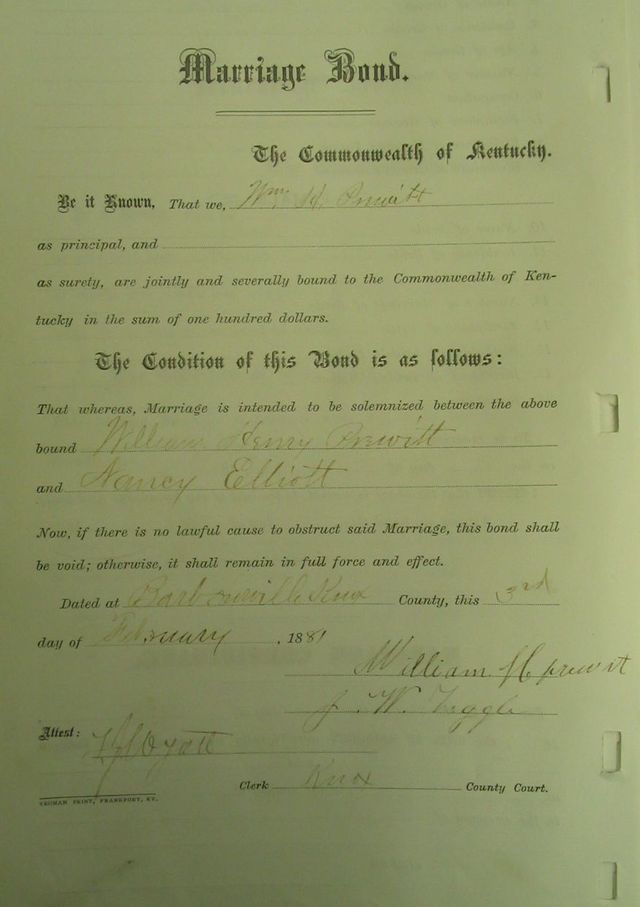 Marriage Bond.
The Commonwealth of Kentucky.
Be it Known, That we, Wm. H. Prewitt
as principal, and
as surety, are jointly and severally bound to the Commonwealth of Ken-
tucky in the sum of one hundred dollars.
The Condition of this Bond is as follows:
That whereas, Marriage is intended to be solemnized between the above
bound William Henry Prewitt
and Nancy Elliott
Now, if there is no lawful cause to obstruct said Marriage, this bond shall
be void; otherwise, it shall remain in full force and effect.
Dated at Barbourville Knox County, this 3rd
day of February, 1881
William H prewitt
J. W.
Attest:
Clerk Knox County Court.
YEOMAN PRINT, FRANKFORT, KY.